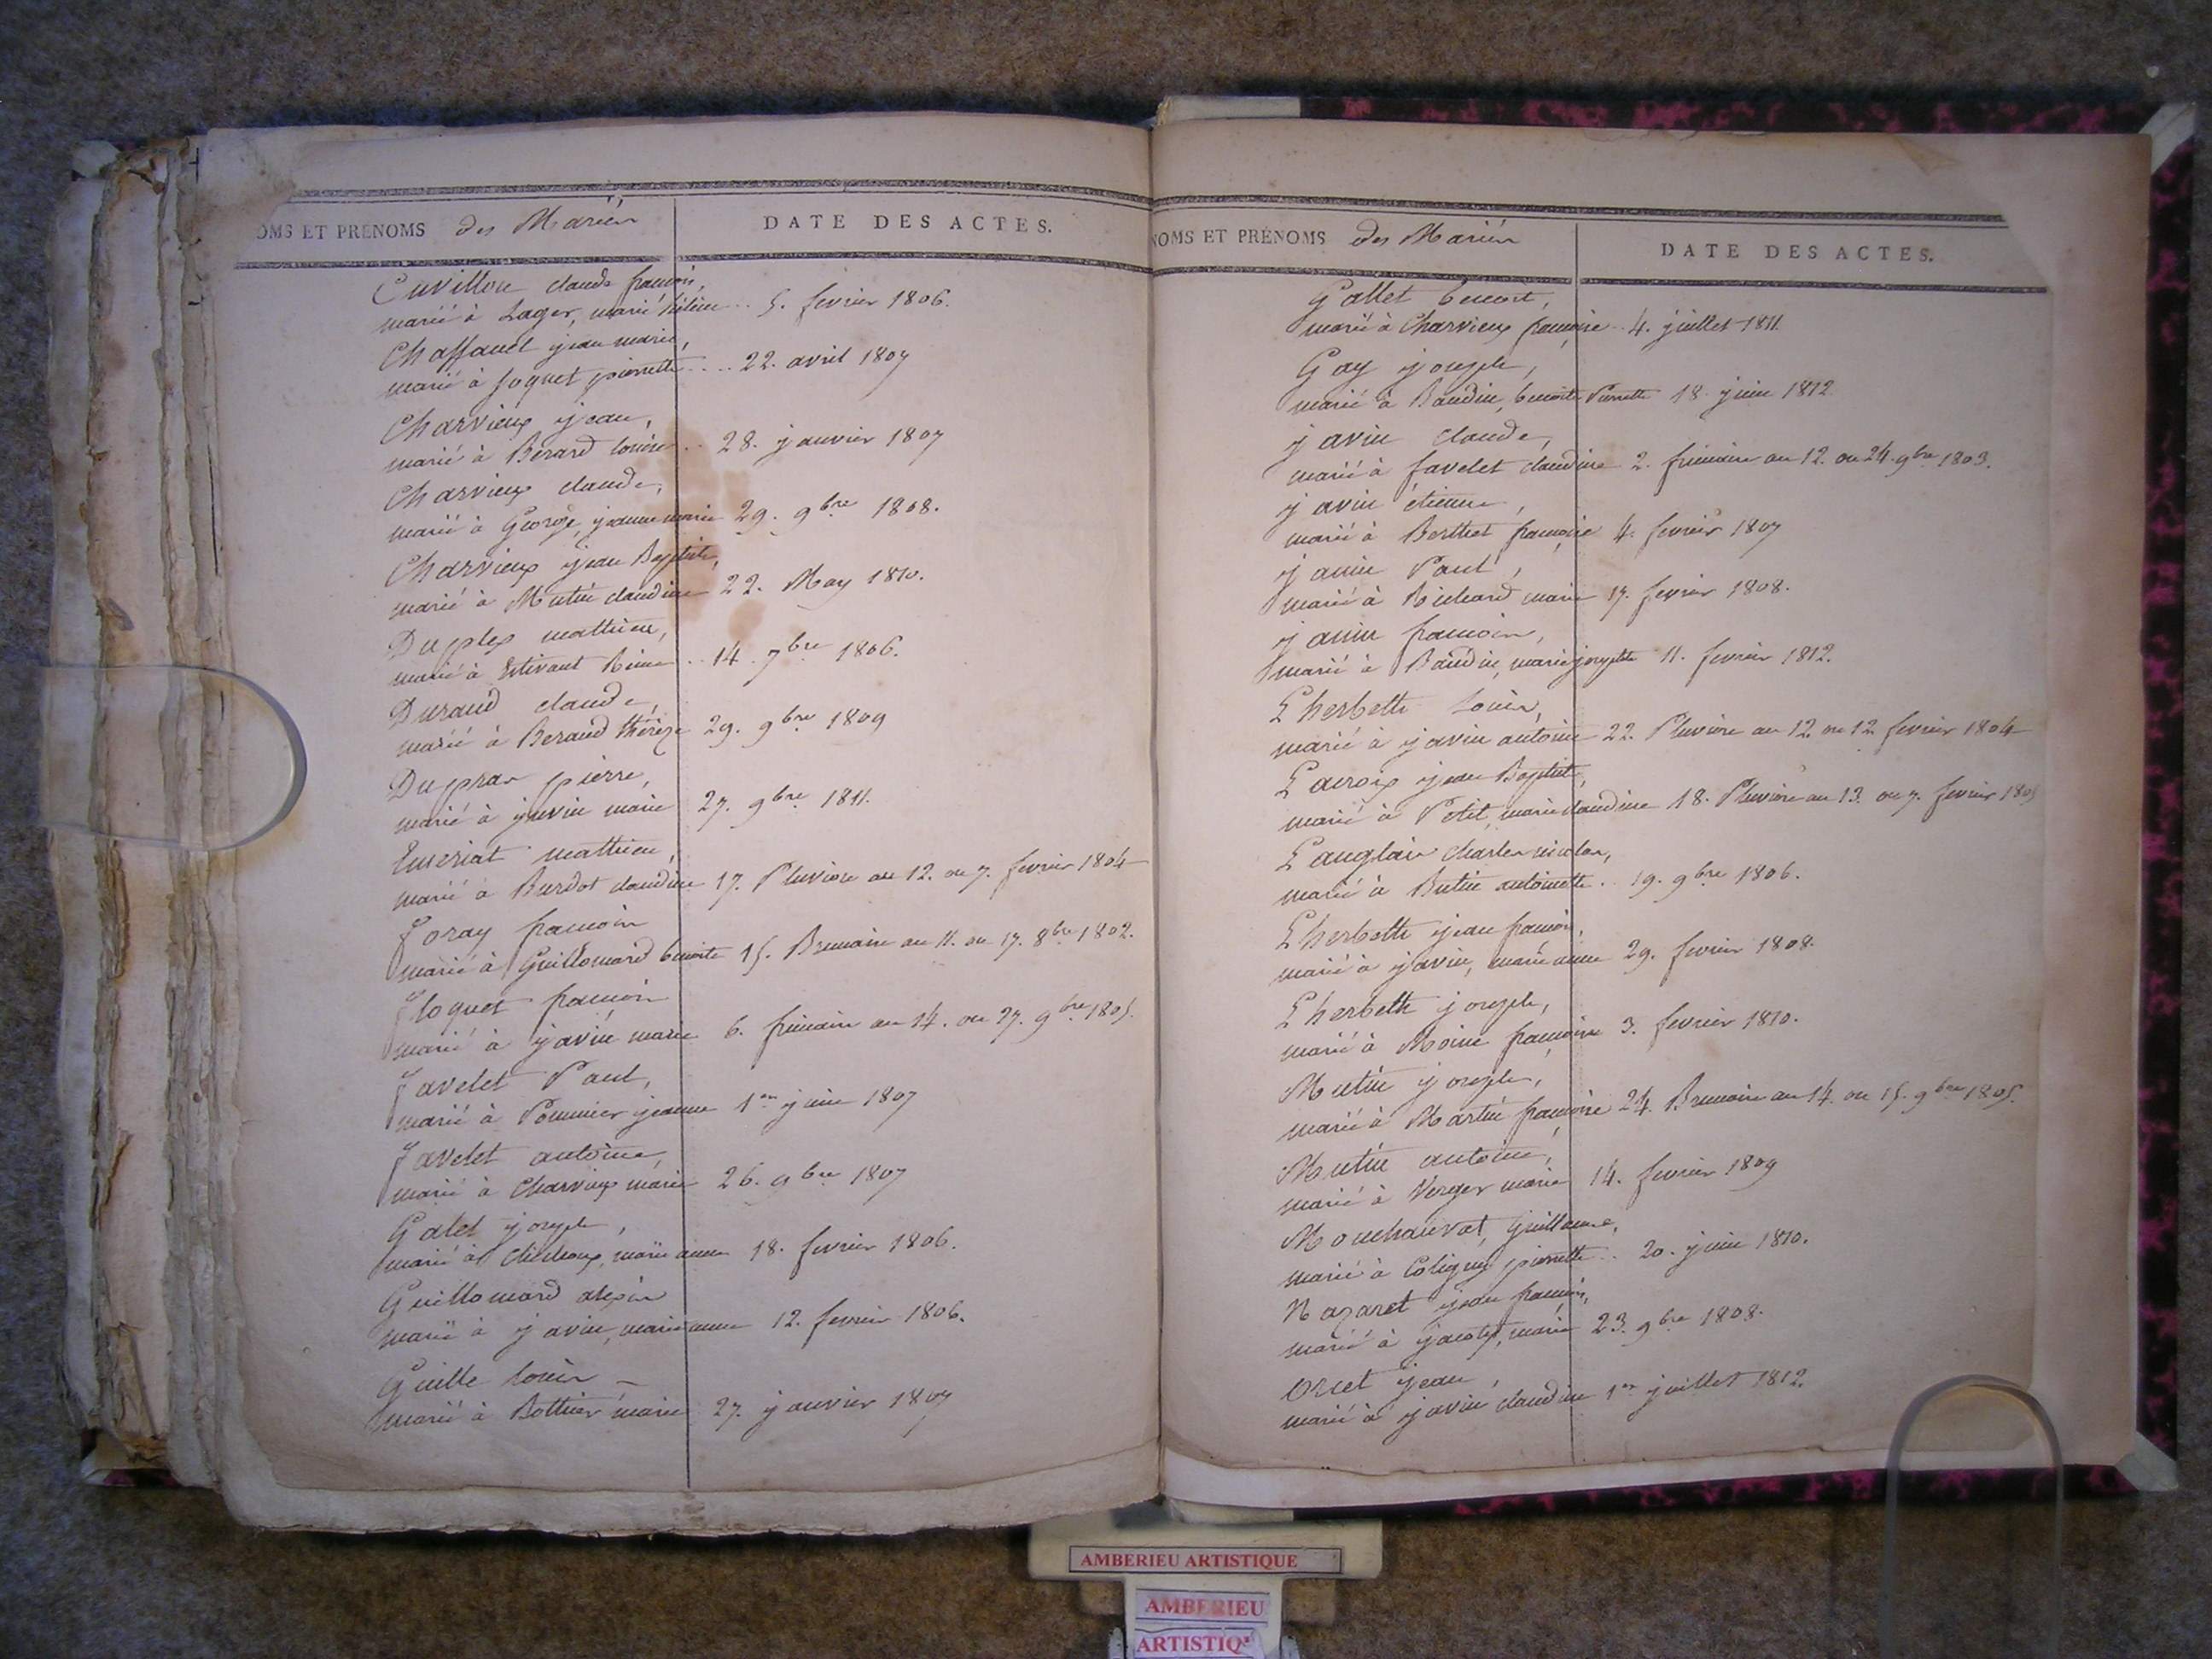 OMS ET PRÉNOMS des Mariés
DATE DES ACTES.
Cuvillon claude françois,
marié à Lager, marie hélène .. 5. fevrier 1806.
Chaffanel jean marie,
marié à foquet pierrette .... 22. avril 1807
Charvieux jean,
marié à Bérard louise .. 28. janvier 1807
Charvieux claude,
marié à George, jeanne marie 29. 9bre 1808.
Charvieux jean Baptiste,
marié à Mutin claudine 22. May 1810.
Duplex mathieu,
marié à Estivant Reine .. 14. 7bre 1806.
Durand claude,
marié à Beraud thérèze 29. 9bre 1809
Dupras pierre,
marié à javin marie 27. 9bre 1811.
Emeriat mathieu,
marié à Burdot claudine 17. Pluviose an 12. ou 7. fevrier 1804
foray francois
marié à Guillomard benoite 15. Brumaire an 11. ou 17. 8bre 1802.
floquet francois
marié à javin marie 6. frimaire an 14. ou 27. 9bre 1805.
favelet Paul,
marié à Pommier jeanne 1er juin 1807
favelet antoine,
marié à Charvieux marie 26. 9bre 1807
Galet joseph,
marié à marie anne 18. fevrier 1806.
Guillomard alexis
marié à javin, marie anne 12. fevrier 1806.
Guille louis
marié à Bottier marie 27. janvier 1807
NOMS ET PRÉNOMS des Mariés
DATE DES ACTES.
Gallet benoit,
marié à Charvieux françoise .. 4. juillet 1811.
Gay joseph,
marié à Baudin, benoite Pierrette 18. juin 1812
javin claude,
marié à favelet claudine 2. frimaire an 12. ou 24. 9bre 1803.
javin étienne,
marié à Berthet françoise 4. fevrier 1807
janin Paul,
marié à Richard marie 17. fevrier 1808.
janin francois,
marié à Baudin, marie josephte 11. fevrier 1812.
Lherbette Louis,
marié à javin antoinie 22. Pluviose an 12 ou 12 fevrier 1804
Lacroix jean Baptiste,
marié à Petit, marie claudine 18. Pluviose an 13. ou 7. fevrier 1805
Langlais charles nicolas,
marié à Butin antoinette .. 19. 9bre 1806.
Lherbette jean françois,
marié à javin, marie anne 29. fevrier 1808.
Lherbette joseph,
marié à Moine françoise 3. fevrier 1810.
Mutin joseph,
marié à Martin françoise 24. Brumaire an 14. ou 15. 9bre 1805.
Mutin antoine,
marié à Verger marie 14. fevrier 1809
Monchauvat, guillaume,
marié à Coligny pierrette .. 20. juin 1810.
Nazaret jean françois,
marié à marie 23. 9bre 1808.
Orset jean,
marié à javin claudine 1er juillet 1812.
AMBERIEU ARTISTIQUE
AMBERIEU
ARTISTIQ